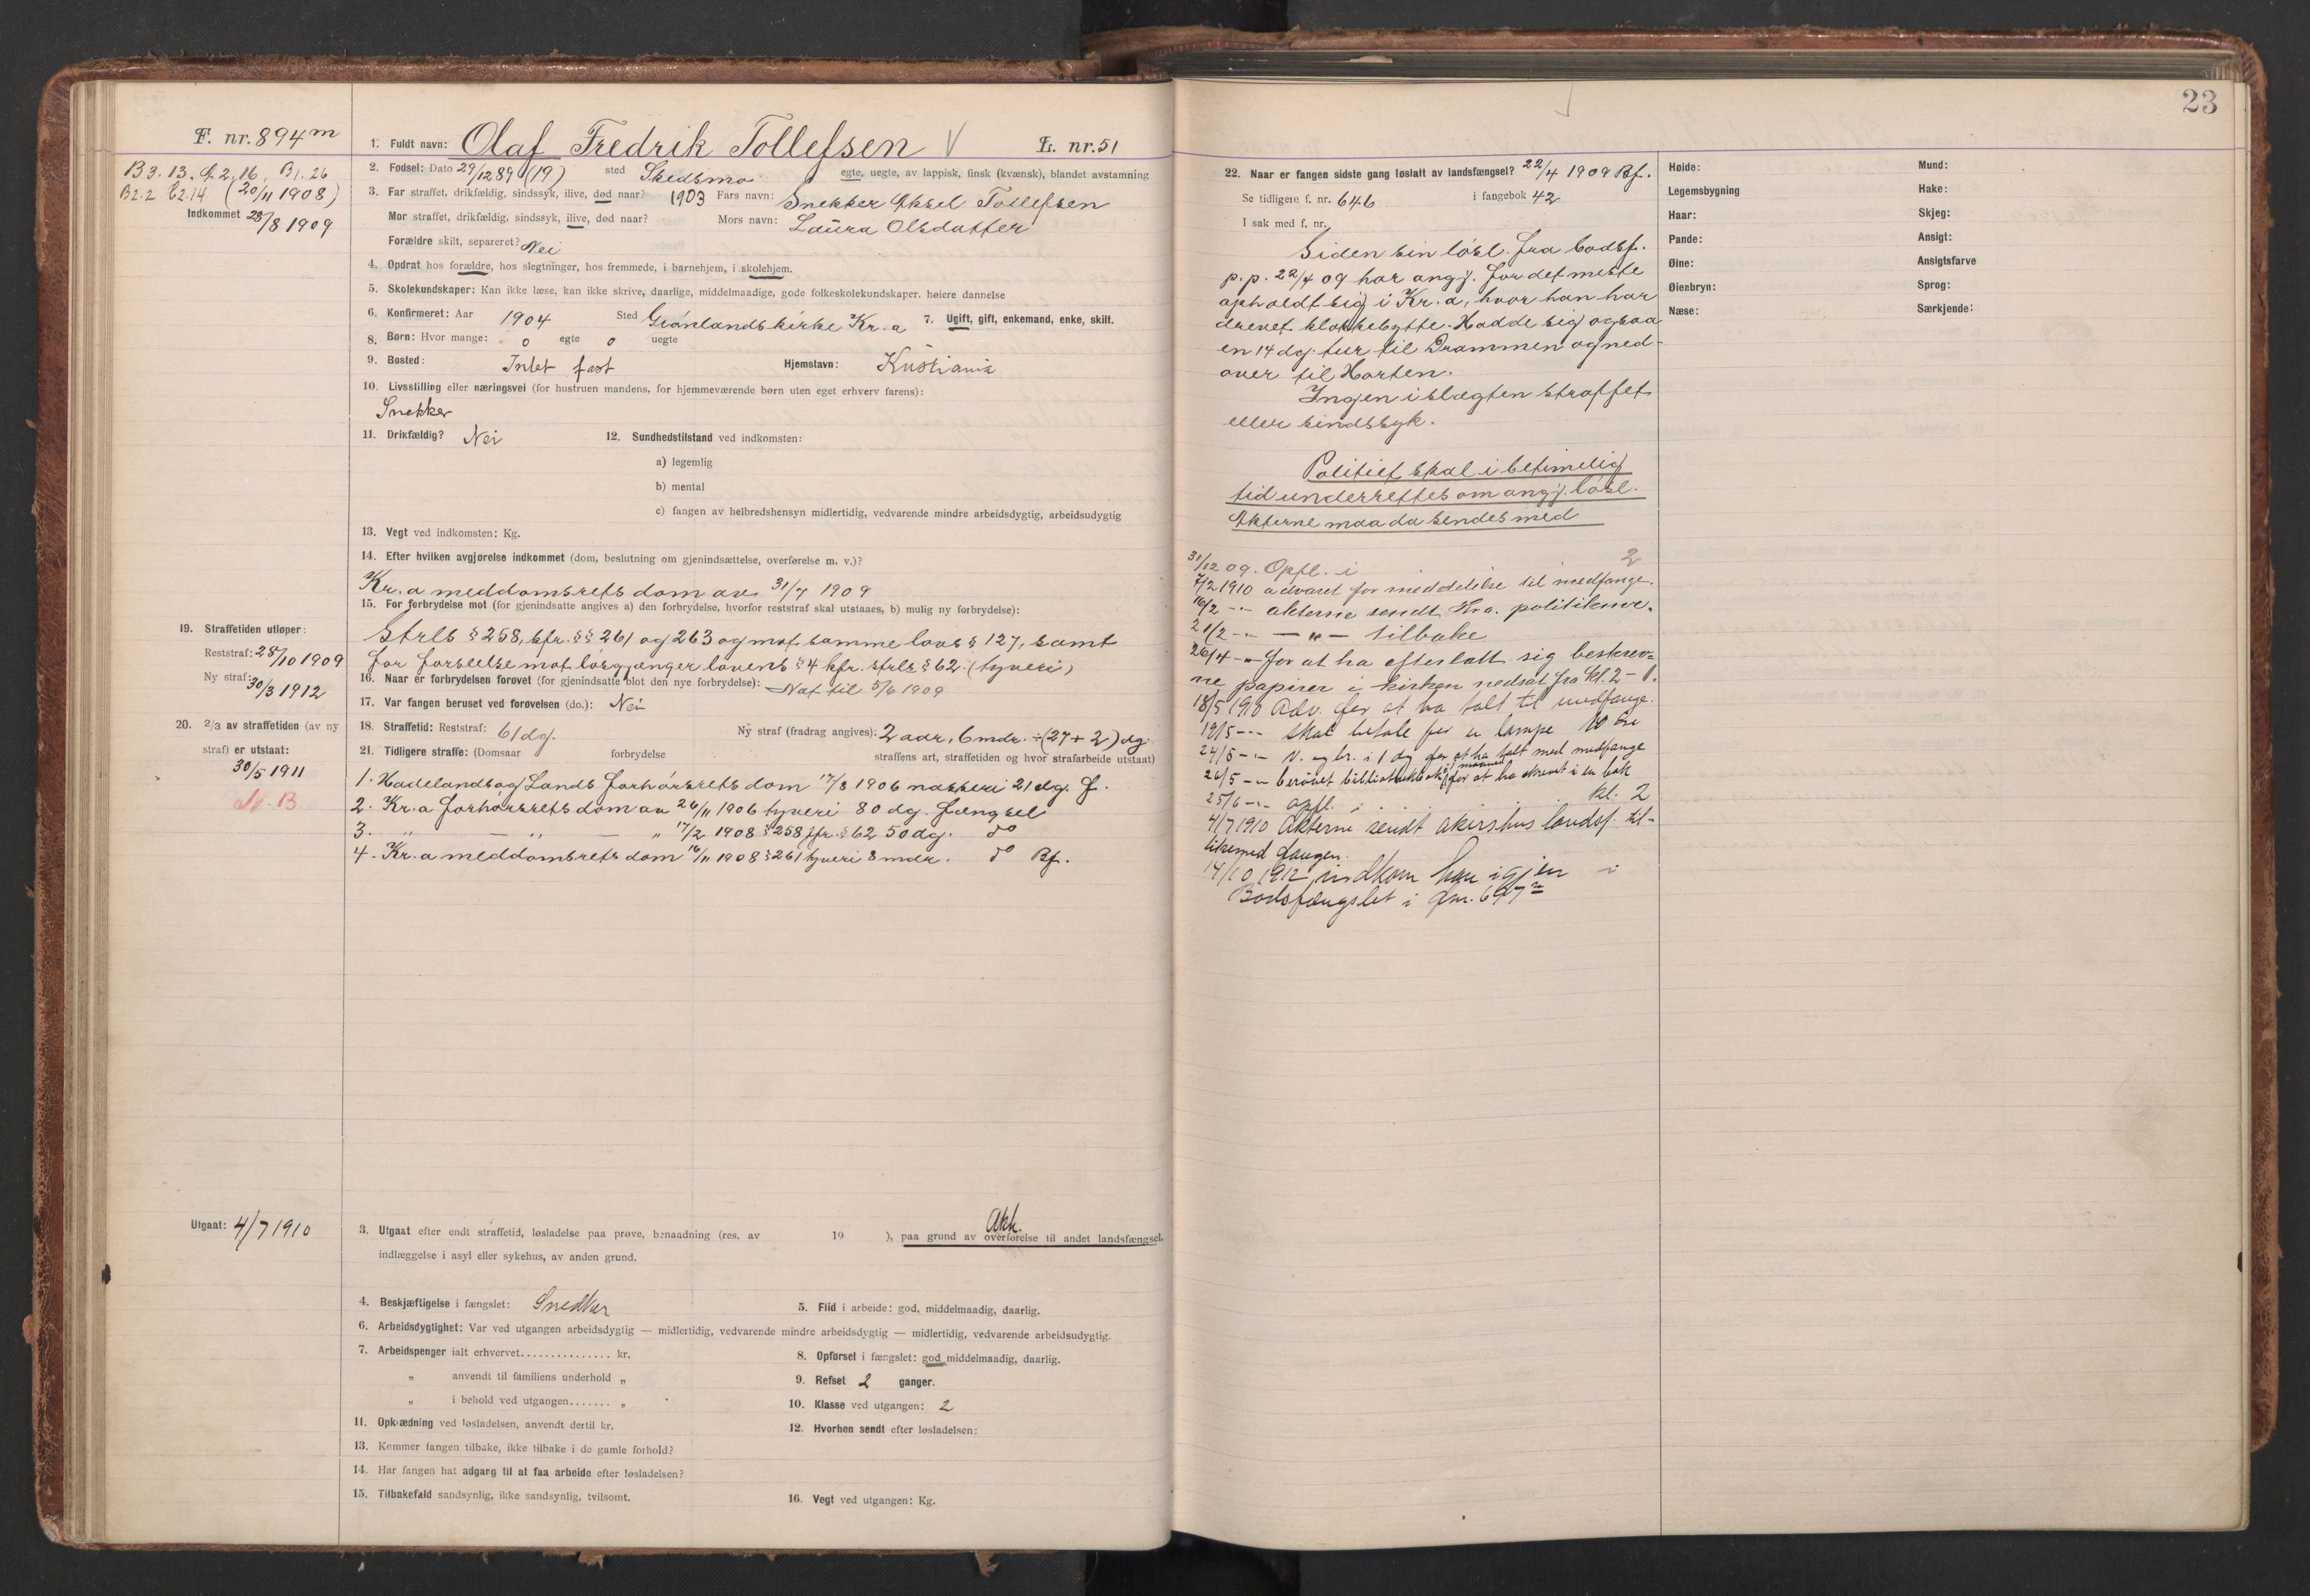 F. nr. 894 m
B 3. 13. A. 2, 16, B1. 26
B2. 2 C2. 14 (20/11 1908)
Indkommet 28/8 1909
1. Fuldt navn: Olaf Fredrik Tollefsen V L. nr. 51
2. Fødsel: Dato 29/12 89 (19) sted Skedsmo egte, uegte, av lappisk, finsk (kvænsk), blandet avstamning
3. Far straffet, drikfældig, sindssyk, ilive, død naar? 1903 Fars navn: Snekker Aksel Tollefsen
Mor straffet, drikfældig, sindssyk, ilive, død naar? Mors navn: Laura Olsdatter
Forældre skilt, separeret? Nei
4. Opdrat hos forældre, hos slegtninger, hos fremmede, i barnehjem, i skolehjem.
5. Skolekundskaper: Kan ikke læse, kan ikke skrive, daarlige, middelmaadige, gode folkeskolekundskaper. høiere dannelse
6. Konfirmeret: Aar 1904 Sted Grønlands kirke Kr.a 7. Ugift, gift, enkemand, enke, skilt.
8. Børn: Hvor mange: 0 egte 0 uegte
9. Bosted: Intet fast Hjemstavn: Kristiania
10. Livsstilling eller næringsvei (for hustruen mandens, for hjemmeværende børn uten eget erhverv farens):
Snekker
11. Drikfældig? Nei 12. Sundhedstilstand ved indkomsten:
a) legemlig
b) mental
c) fangen av helbredshensyn midlertidig, vedvarende mindre arbeidsdygtig, arbeidsudygtig
13. Vegt ved indkomsten: Kg.
14. Efter hvilken avgjørelse indkommet (dom, beslutning om gjenindsættelse, overførelse m. v.)?
Kr.a meddomsrets dom av 31/7 1909
15. For forbrydelse mot (for gjenindsatte angives a) den forbrydelse, hvorfor reststraf skal utstaaes, b) mulig ny forbrydelse):
Strls § 258, kfr. §§ 261 og 263 og mot samme lovs § 127, samt
for forseelse mot løsgjænger lovens § 4 kfr. strls § 62. (tyveri)
16. Naar er forbrydelsen forøvet (for gjenindsatte blot den nye forbrydelse): Nat til 5/6 1909
17. Var fangen beruset ved forøvelsen (do.): Nei
18. Straffetid: Reststraf: 61 dg. Ny straf (fradrag angives): 2 aar, 6 mdr. ÷ (27 + 2) dg.
19. Straffetiden utløper:
Reststraf: 28/10 1909
Ny straf: 30/3 1912
20. 2/3 av straffetiden (av ny
straf) er utstaat:
30/5 1911
21. Tidligere straffe: (Domsaar forbrydelse straffens art, straffetiden og hvor strafarbeide utstaat)
1. Hadeland og Lands forhørsrets dom 17/8 1906 naskeri 21 dg. f.
2. Kr.a forhørsrets dom av 26/11 1906 tyveri 80 dg. fængsel
3. " — " — " 17/2 1908 § 258 jfr. § 62 50 dg. do
4. Kr.a meddomsrets dom 16/11 1908 § 261 tyveri 8 mdr. do Bf.
Utgaat: 4/7 1910
Akh.
3. Utgaat efter endt straffetid, løsladelse paa prøve, benaadning (res. av 19 ), paa grund av overførelse til andet landsfængsel,
indlæggelse i asyl eller sykehus, av anden grund.
4. Beskjæftigelse i fængslet: Snedker 5. Flid i arbeide: god, middelmaadig, daarlig.
6. Arbeidsdygtighet: Var ved utgangen arbeidsdygtig — midlertidig, vedvarende mindre arbeidsdygtig — midlertidig, vedvarende arbeidsudygtig.
7. Arbeidspenger ialt erhvervet............... kr. 8. Opførsel i fængslet: god middelmaadig, daarlig.
„ anvendt til familiens underhold „ 9. Refset 2 ganger.
„ i behold ved utgangen....... „ 10. Klasse ved utgangen: 2
11. Opklædning ved løsladelsen, anvendt dertil kr. 12. Hvorhen sendt efter løsladelsen:
13. Kommer fangen tilbake, ikke tilbake i de gamle forhold?
14. Har fangen hat adgang til at faa arbeide efter løsladelsen?
15. Tilbakefald sandsynlig, ikke sandsynlig, tvilsomt. 16. Vegt ved utgangen: Kg.
23
22. Naar er fangen sidste gang løslatt av landsfængsel? 22/4 1909 Bf.
Se tidligere f. nr. 646 i fangebok 42
I sak med f. nr.
Siden sin løsl. fra bodsf.
p. p. 22/4 09 har angj. for det meste
opholdt sig i Kr.a, hvor han har
drevet klokkebytte. Hadde sig ogsaa
en 14 dg. tur til Drammen og ned-
over til Horten.
Ingen i slægten straffet
eller sindssyk.
Politiet skal i betimelig
tid underrettes om angj. løsl.
Akterne maa da sendes med
31/12 09. Opfl. i 2
7/2 1910 advaret for meddelelse til medfange.
16/2 -"- akterne sendt Kra. politikam.
21/2 -"- — " — tilbake
26/4 -"- for at ha efterlatt sig beskrev=
ne papirer i kirken nedsat fra kl. 2 - 1.
18/5 1910 Adv. for at ha talt til medfange.
19/5 -"- skal betale for en lampe 10 øre
24/5 -"- V. og br. i 1 dg for at ha talt med medfange
26/5 -"- berøvet bibliotekbok i 1 maaned for at ha skrevet i en bok
25/6 -"- opfl. i . . . . kl. 2
4/7 1910 Akterne sendt Akershus landsf. til-
likemed fangen.
14/10 1912 indkom han igjen i
Bodsfængslet i fnr. 697
Høide:
Legemsbygning
Haar:
Pande:
Øine:
Øienbryn:
Næse:
Mund:
Hake:
Skjeg:
Ansigt:
Ansigtsfarve
Sprog:
Særkjende: